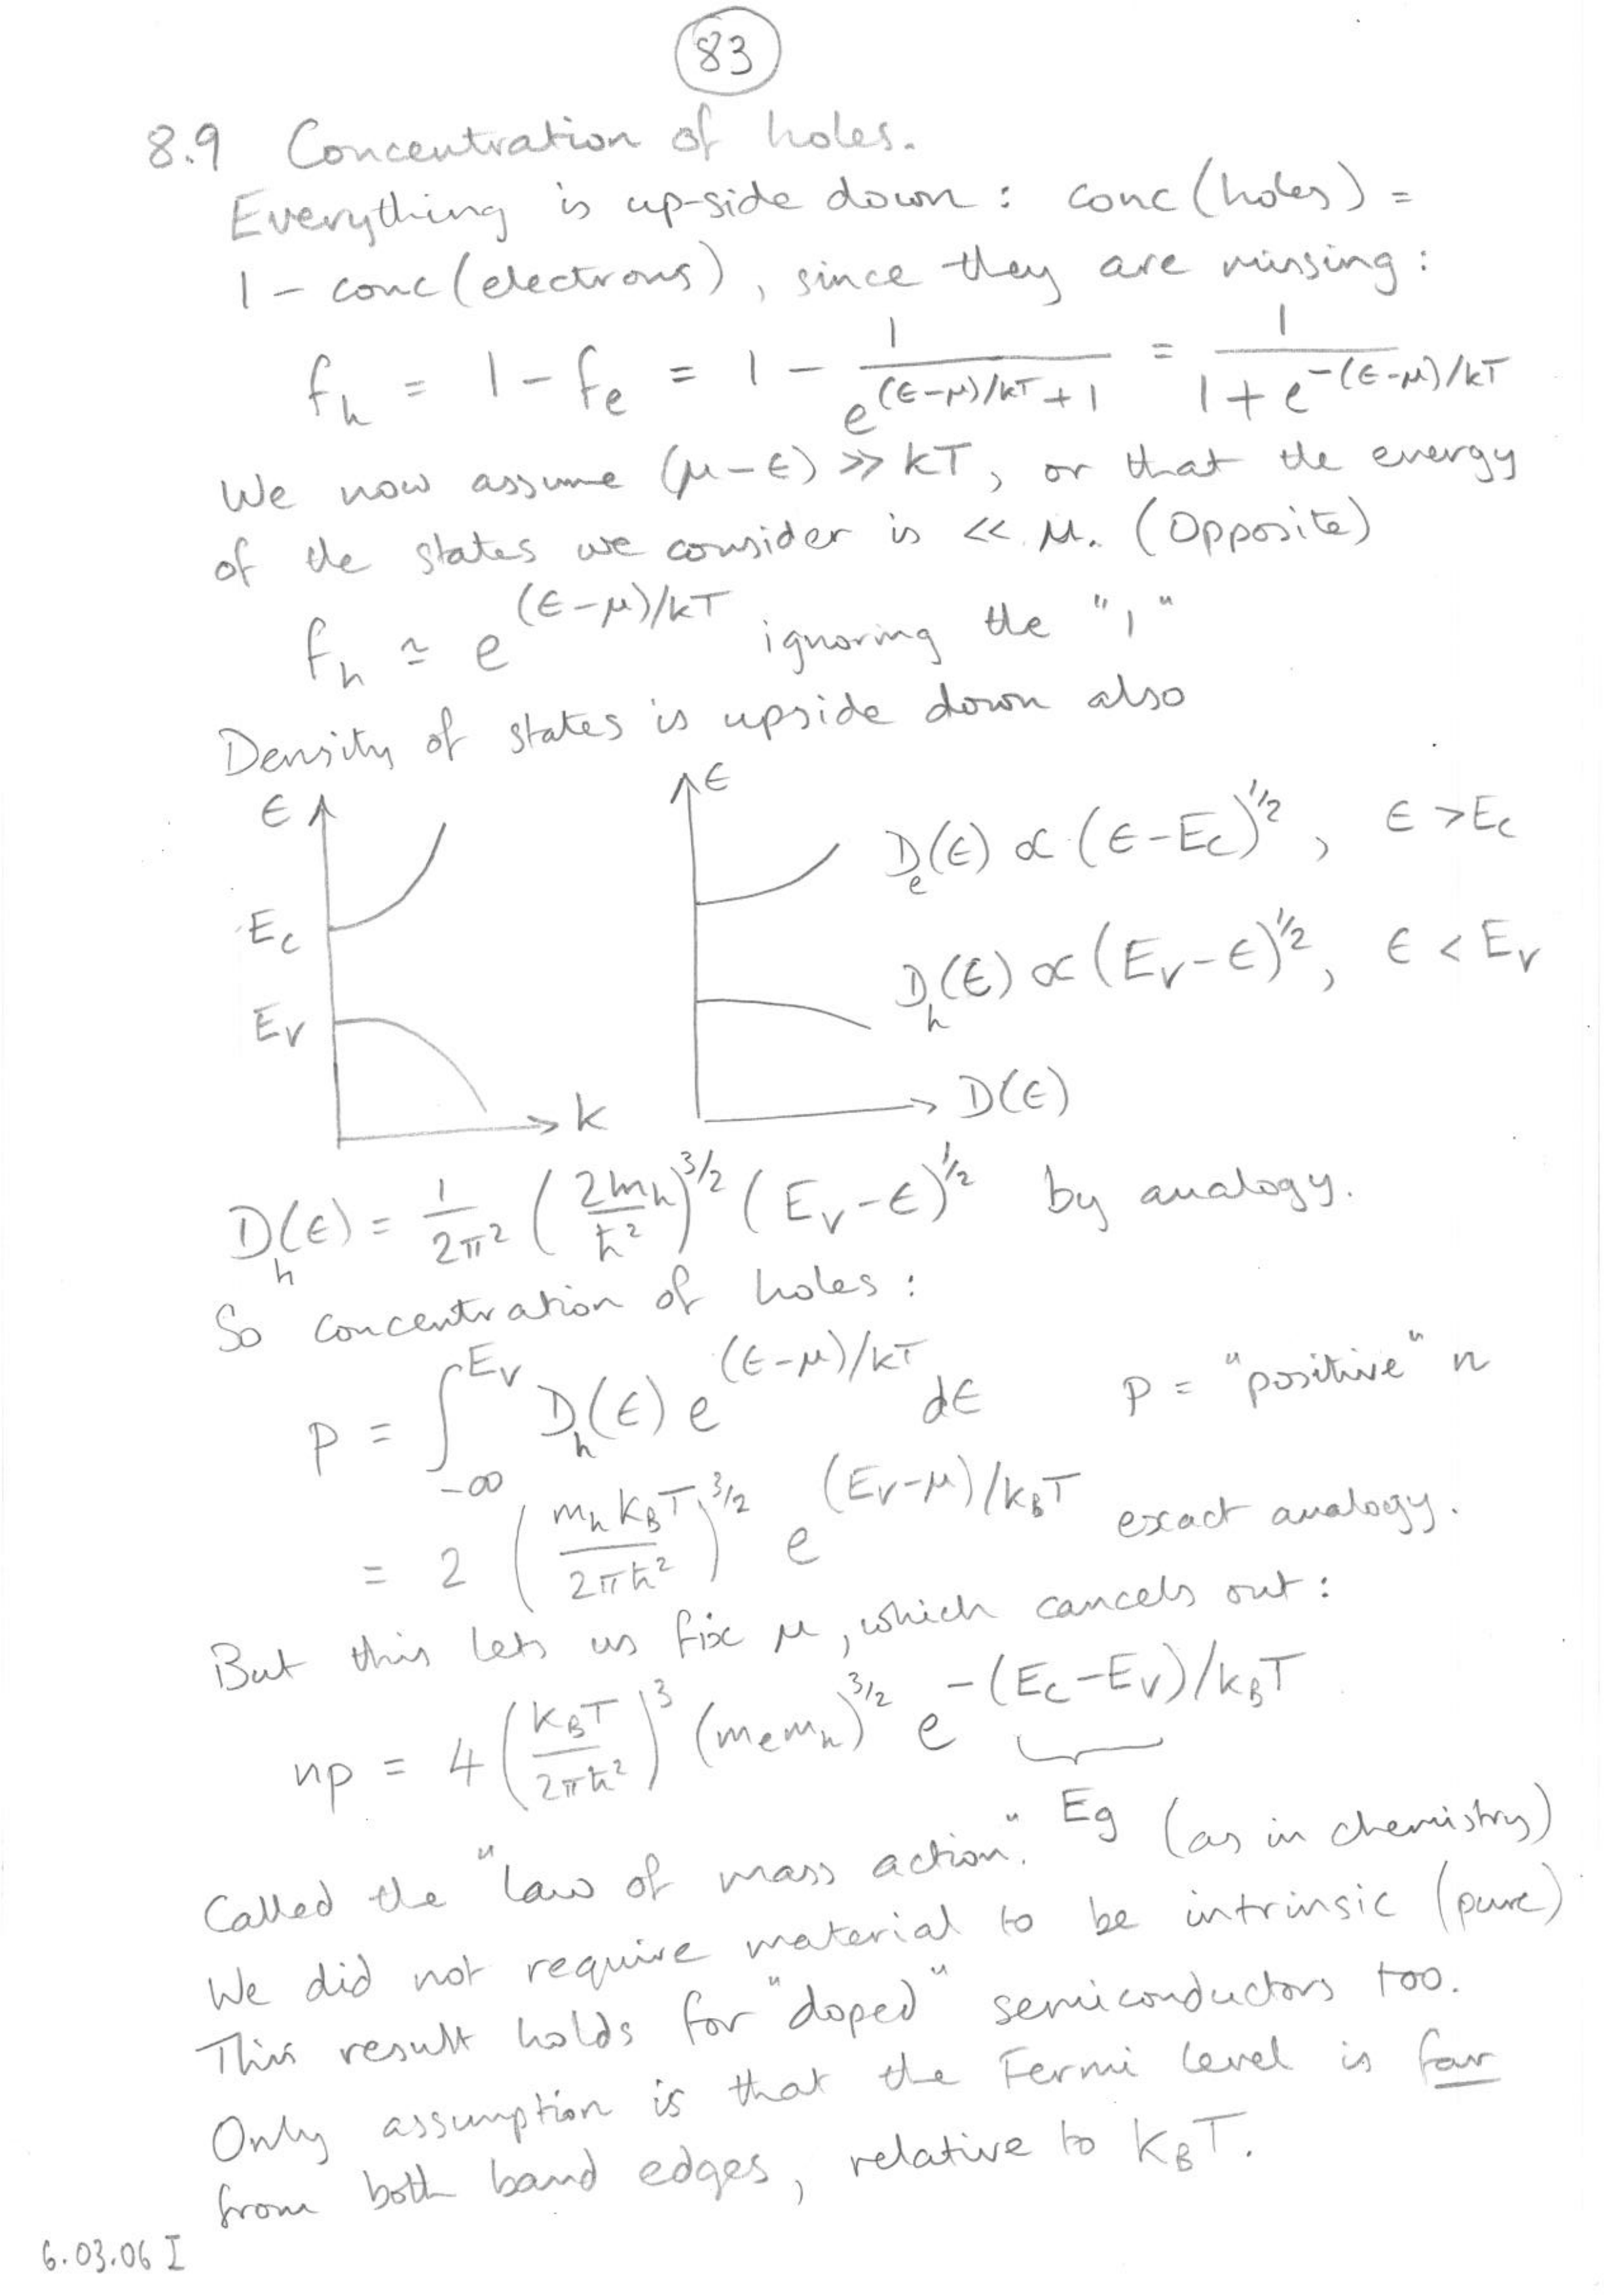 83
8.9 Concentration of holes.
Everything is up-side down: conc(holes) =
1 - conc(electrons), since they are missing:
f_h = 1 - f_e = 1 - 1/(e^((ϵ-μ)/kT) + 1) = 1/(1 + e^(-(ϵ-μ)/kT))
We now assume (μ-ϵ) >> kT, or that the energy
of the states we consider is << μ. (Opposite)
f_h ≃ e^((ϵ-μ)/kT) ignoring the "1"
Density of states is upside down also
ϵ
E_c
E_v
k
ϵ
D_e(ϵ) ∝ (ϵ-E_c)^(1/2), ϵ > E_c
D_h(ϵ) ∝ (E_v-ϵ)^(1/2), ϵ < E_v
D(ϵ)
D_h(ϵ) = 1/(2π²) (2m_h/ħ²)^(3/2) (E_v-ϵ)^(1/2) by analogy.
So concentration of holes:
p = ∫_{-∞}^{E_v} D_h(ϵ) e^((ϵ-μ)/kT) dϵ p = "positive" n
= 2 (m_h k_B T/2πħ²)^(3/2) e^((E_v-μ)/k_B T) exact analogy.
But this lets us fix μ, which cancels out:
np = 4 (k_B T/2πħ²)^3 (m_e m_h)^(3/2) e^(-(E_c-E_v)/k_B T)
Eg
Called the "law of mass action." (as in chemistry)
We did not require material to be intrinsic (pure)
This result holds for "doped" semiconductors too.
Only assumption is that the Fermi level is far
from both band edges, relative to k_B T.
6.03.06 I